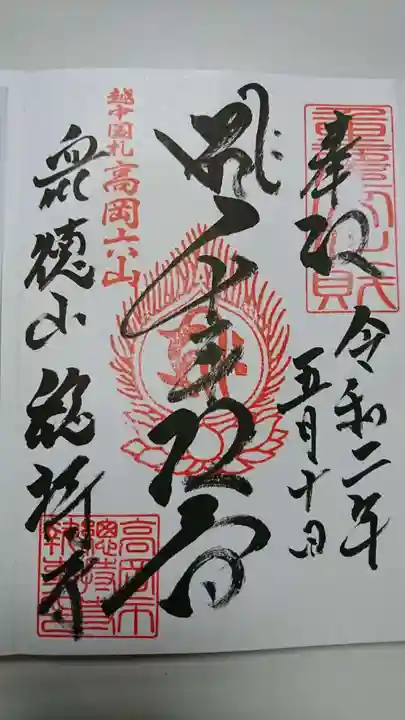 奉拝
令和二年
五月十日
千手観音
越中国札
高岡六山
衆徳山 総持寺
高岡市
總持寺